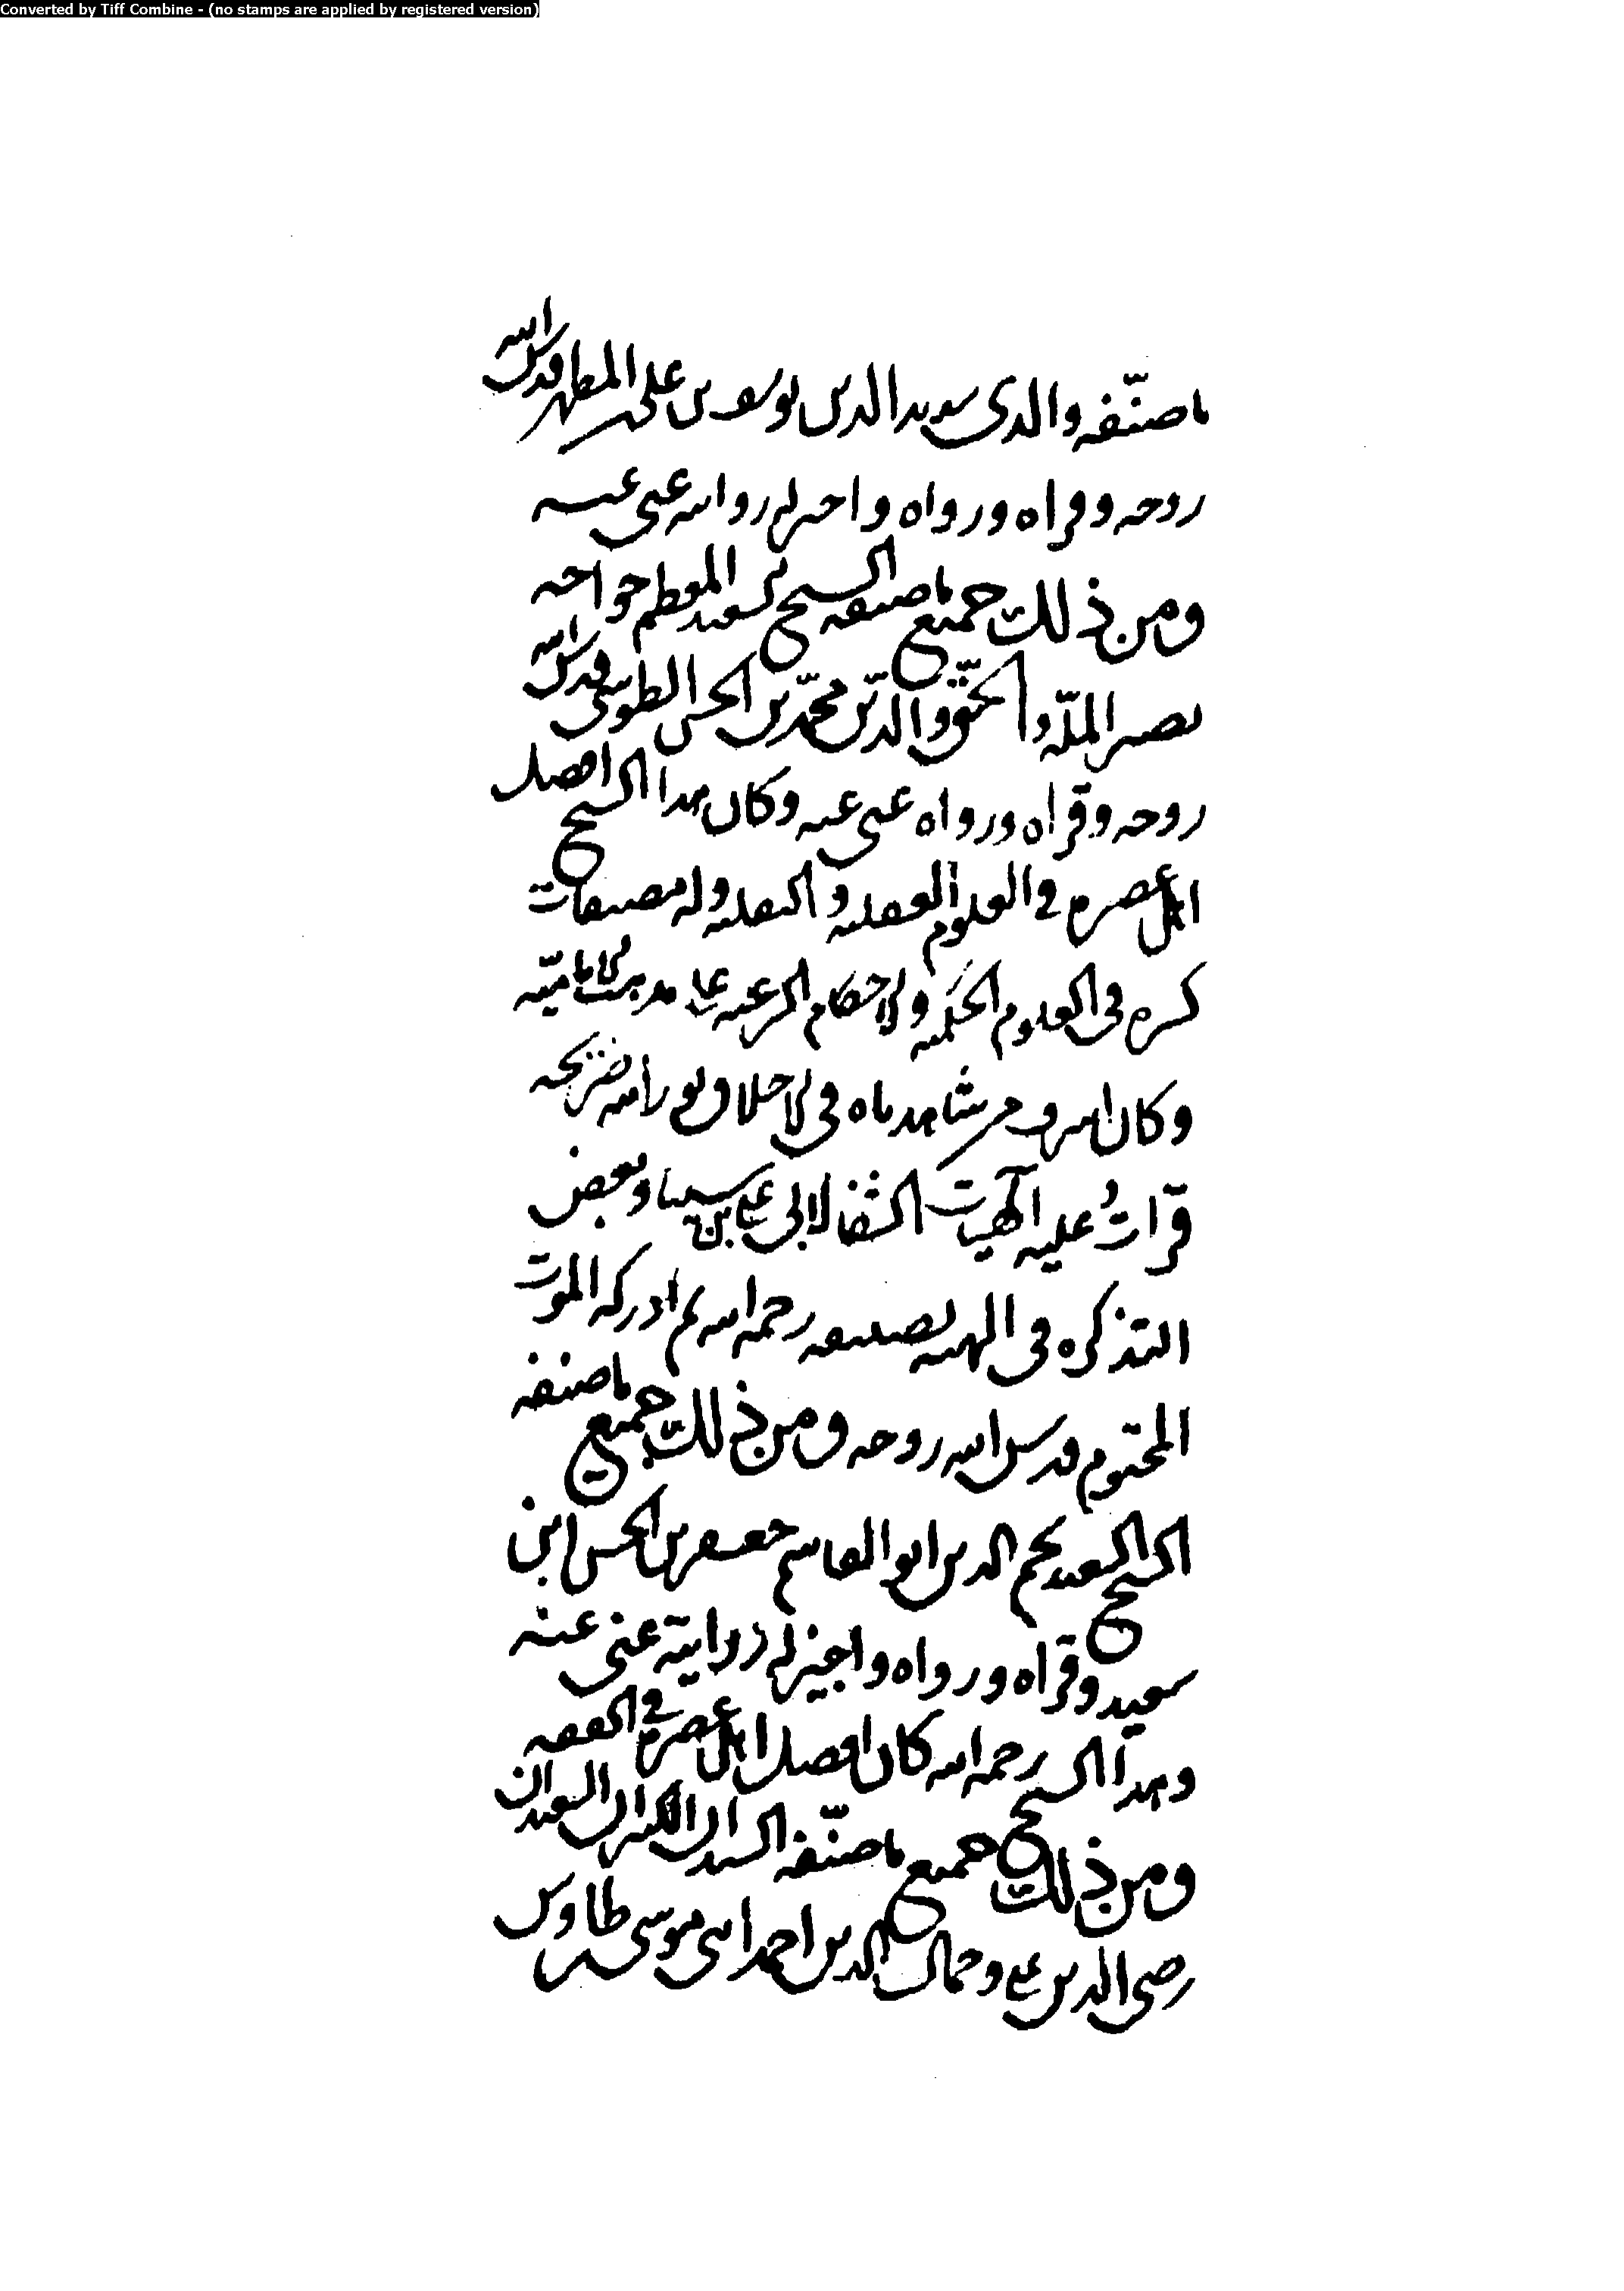 Converted by Tiff Combine - (no stamps are applied by registered version)
ما صنّفه والدى سديد الدين يوسف بن على بن المطهر قدس الله
روحه وقراه ورواه واجيز له روايته عنى عنه
ومن ذلك جميع ما صنفه الشيخ السعيد المعظم خواجه
نصير الملّه والحقّ والدّين محمّد بن الحسن الطوسي قدس الله
روحه وقراه ورواه عنى عنه وكان هذا الشيخ افضل
اهل عصره في العلوم العقليه والنقليه وله مصنفات
كثيره فى العلوم الحكميه والاحكام الشرعيه على مذهب الاماميّه
وكان اشرف من شاهدناه في الاخلاق نور الله ضريحه
قراتُ عليه الهيات الشفا لابى على بن سينا وبعض
التذكره فى الهيئه تصنيفه رحمه الله ثم ادركه الموت
المحتوم قدس الله روحه ومن ذلك جميع ما صنفه
الشيخ السعيد نجم الدين ابو القاسم جعفر بن الحسن ابن
سعيد وقراه ورواه واجيز له روايته عنى عنه
وهذا الشيخ رحمه الله كان افضل اهل عصره في الفقه
ومن ذلك جميع ما صنّفه السيدان الكبيران السعيدان
رضى الدين على وجمال الدين احمد ابنى موسى بن طاوس